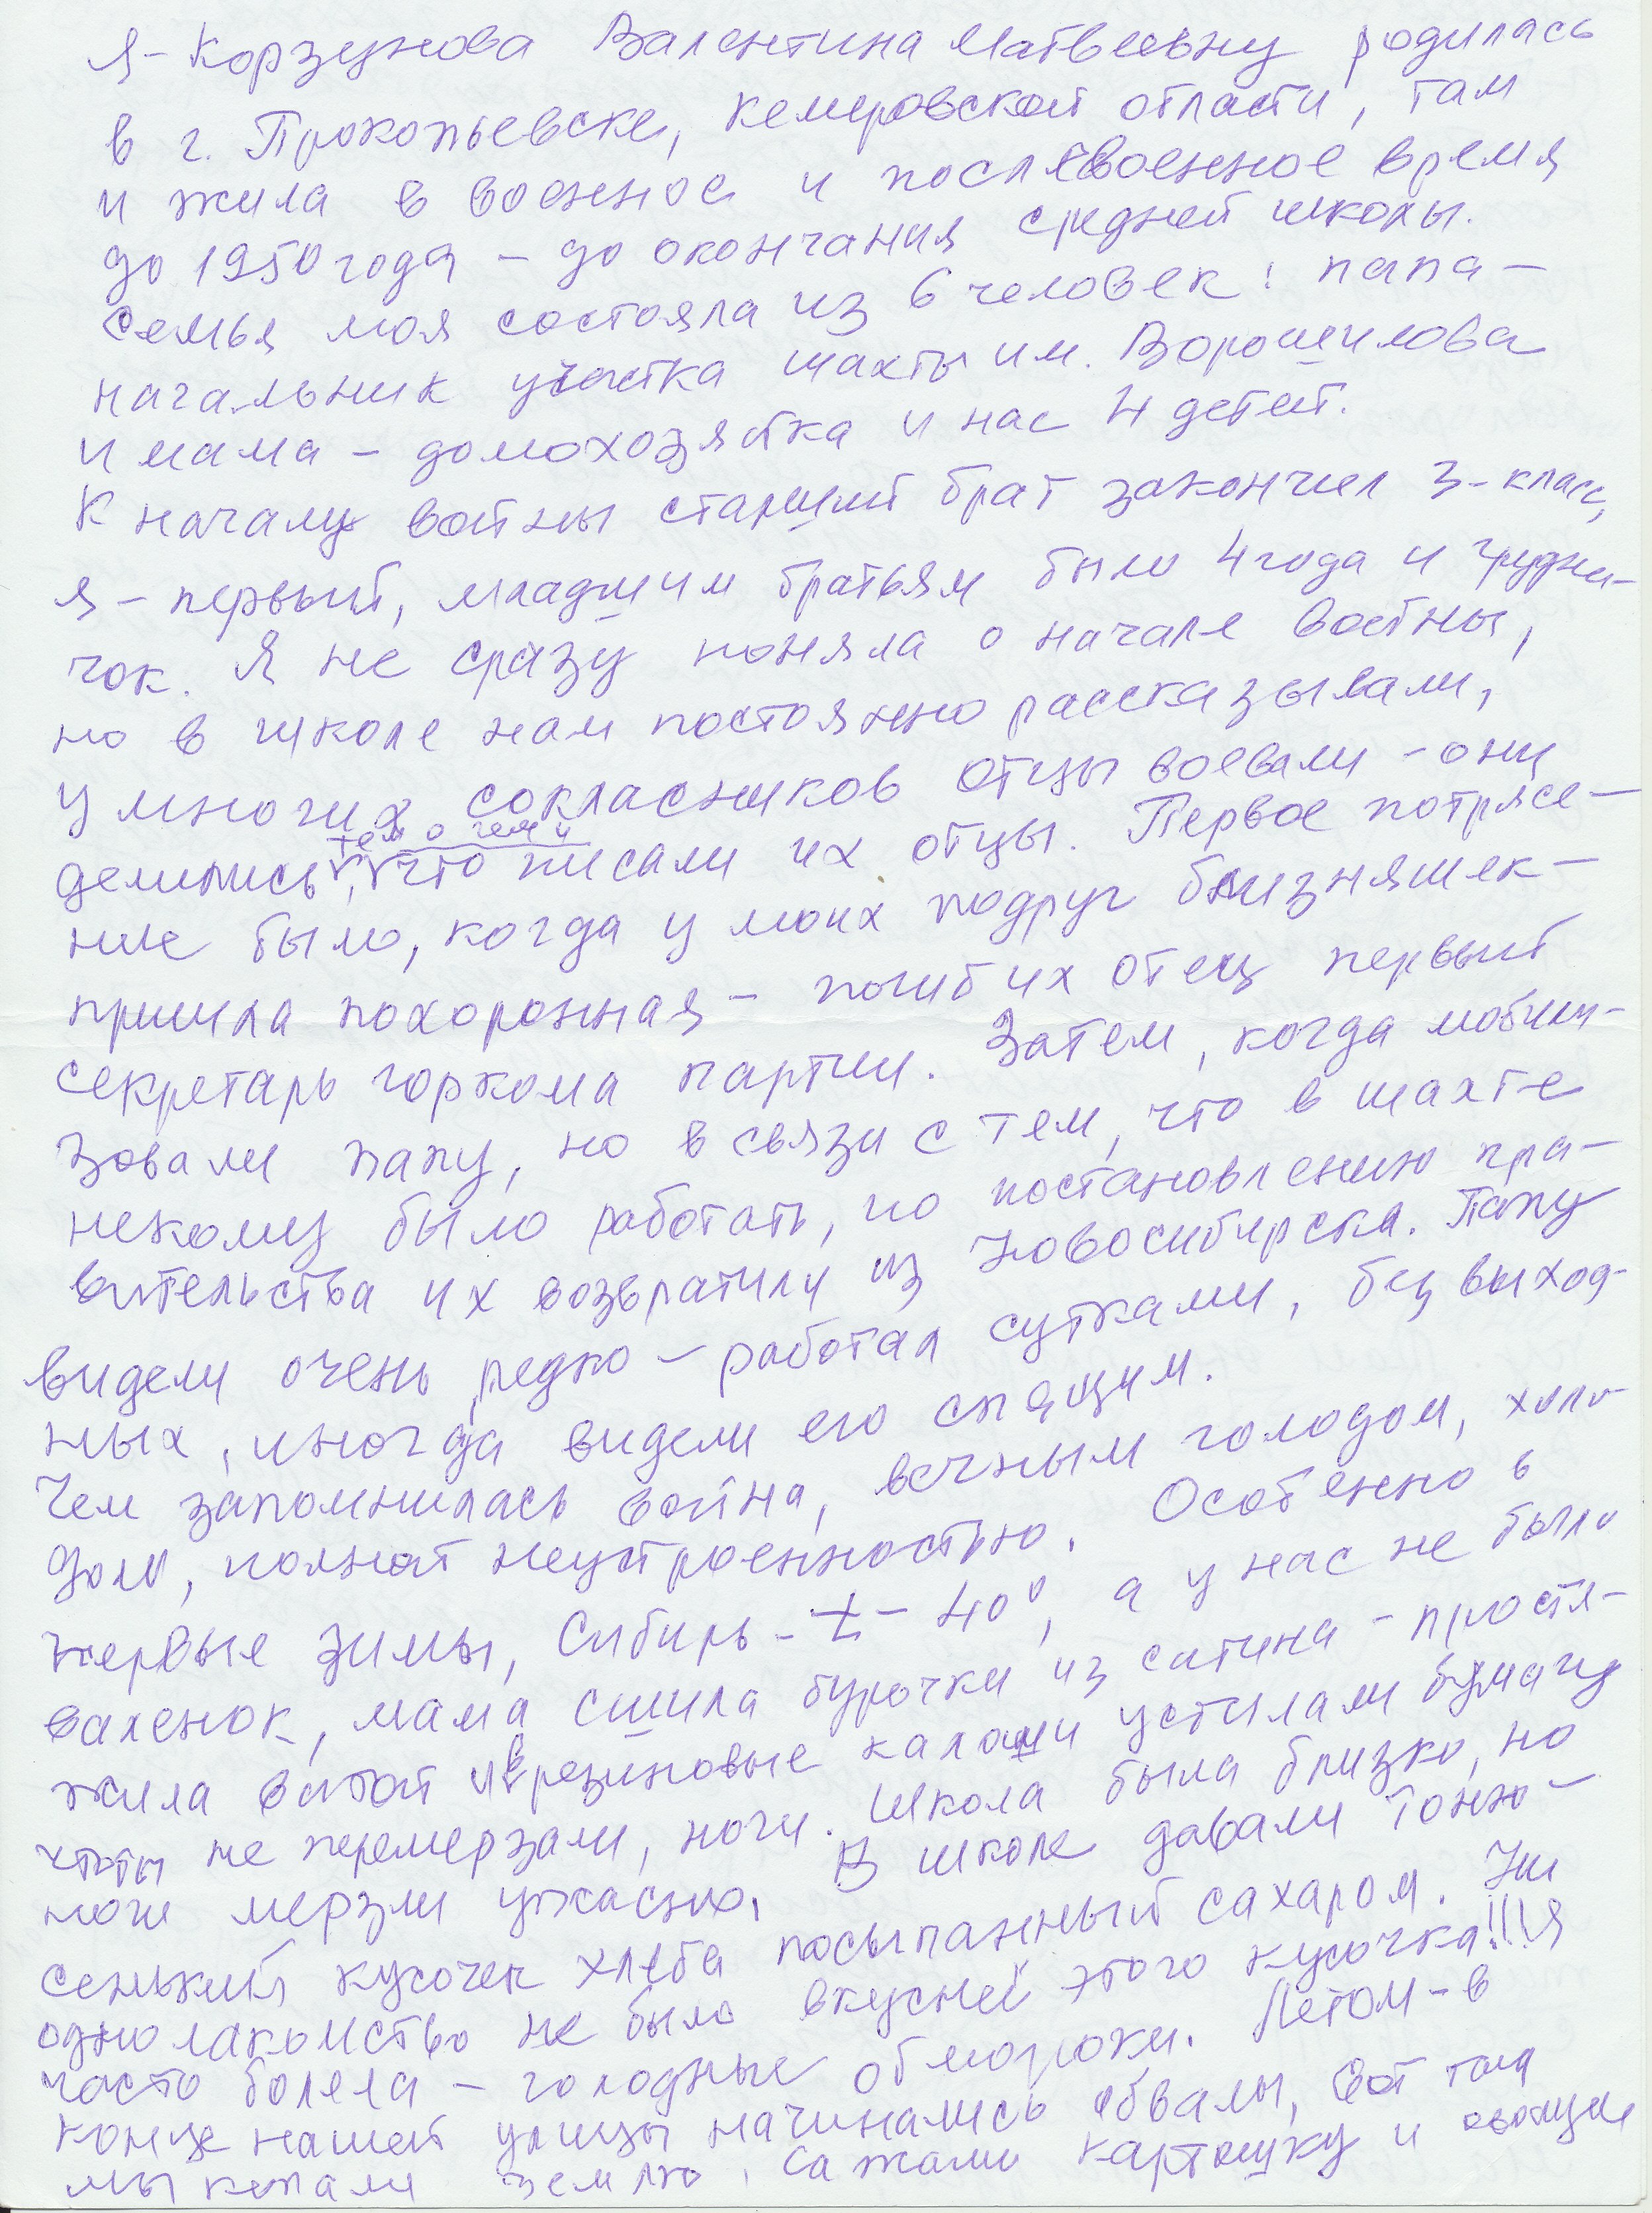 Я - Корзунова Валентина Матвеевну родилась
в г. Прокопьевске, Кемеровской области, там
и жила в военное и послевоенное время
до 1950 года - до окончания средней школы.
Семья моя состояла из 6 человек: папа -
начальник участка шахты им. Ворошилова
и мама - домохозяйка и нас 4 детей.
К началу войны старший брат закончил 3-класс,
я - первый, младшим братьям было 4 года и грудни-
чок. Я не сразу поняла о начале войны,
но в школе нам постоянно рассказывали,
у многих сокласников отцы воевали - они
тем о чем и
делились, что писали их отцы. Первое потрясе-
ние было, когда у моих подруг близняшек -
пришла похоронная - погиб их отец первый
секретарь горкома партии. Затем, когда мобили-
зовали папу, но в связи с тем, что в шахте
некому было работать, по постановлению пра-
вительства их возвратили из Новосибирска. Папу
видели очень редко - работал сутками, без выход-
ных, иногда видели его спящим.
Чем запомнилась война, вечным голодом, холо-
дом, полной неустроенностью. Особенно в
первые зимы, Сибирь - t - 40°, а у нас не было
валенок, мама сшила бурочки из сатина - простя-
жила ватой и в резиновые калоши устилали бумагу
чтобы не перемерзали, ноги. Школа была близко, но
ноги мерзли ужасно. В школе давали тоню-
сенький кусочек хлеба посыпанный сахаром. Ни
одно лакомство не было вкусней этого кусочка!!! Я
часто болела - голодные обмороки. Летом - в
конце нашей улицы начинались обвалы, вот там
мы копали землю, сажали картошку и овощи